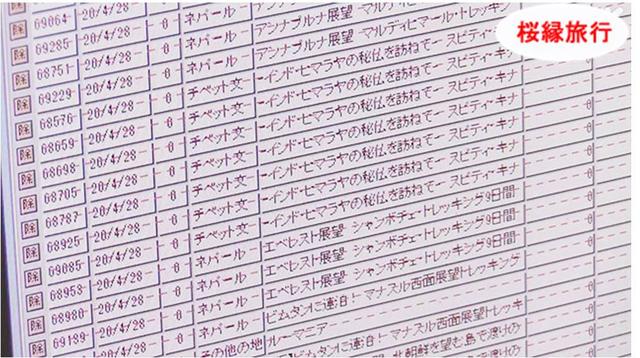 桜縁旅行
除 69064 20/4/28 0 ネパール アンナプルナ展望 マルディヒマール・トレッキング
除 69285 20/4/28 0 ネパール アンナプルナ展望 マルディヒマール・トレッキ
除 68751 20/4/28 0 ネパール
除 69229 20/4/28 0 チベット文 ーインド・ヒマラヤの秘仏を訪ねてー スピティ・キナ
除 68576 20/4/28 0 チベット文 ーインド・ヒマラヤの秘仏を訪ねてー スピティ・キナ
除 68659 20/4/28 0 チベット文 ーインド・ヒマラヤの秘仏を訪ねてー スピティ・キナ
除 68698 20/4/28 0 チベット文 ーインド・ヒマラヤの秘仏を訪ねてー スピティ・キナ
除 68705 20/4/28 0 チベット文 ーインド・ヒマラヤの秘仏を訪ねてー スピティ・キナ
除 68787 20/4/28 0 チベット文 ーインド・ヒマラヤの秘仏を訪ねてー スピティ・キナ
除 68925 20/4/28 0 チベット文
除 69085 20/4/28 0 ネパール エベレスト展望 シャンボチェ・トレッキング9日間
除 68953 20/4/28 0 ネパール エベレスト展望 シャンボチェ・トレッキング9日間
除 68980 20/4/28 0 ネパール
除 69189 20/4/28 0 ネパール ビムタンに連泊!マナスル西面展望トレッキング
その他の地 ルーマニア